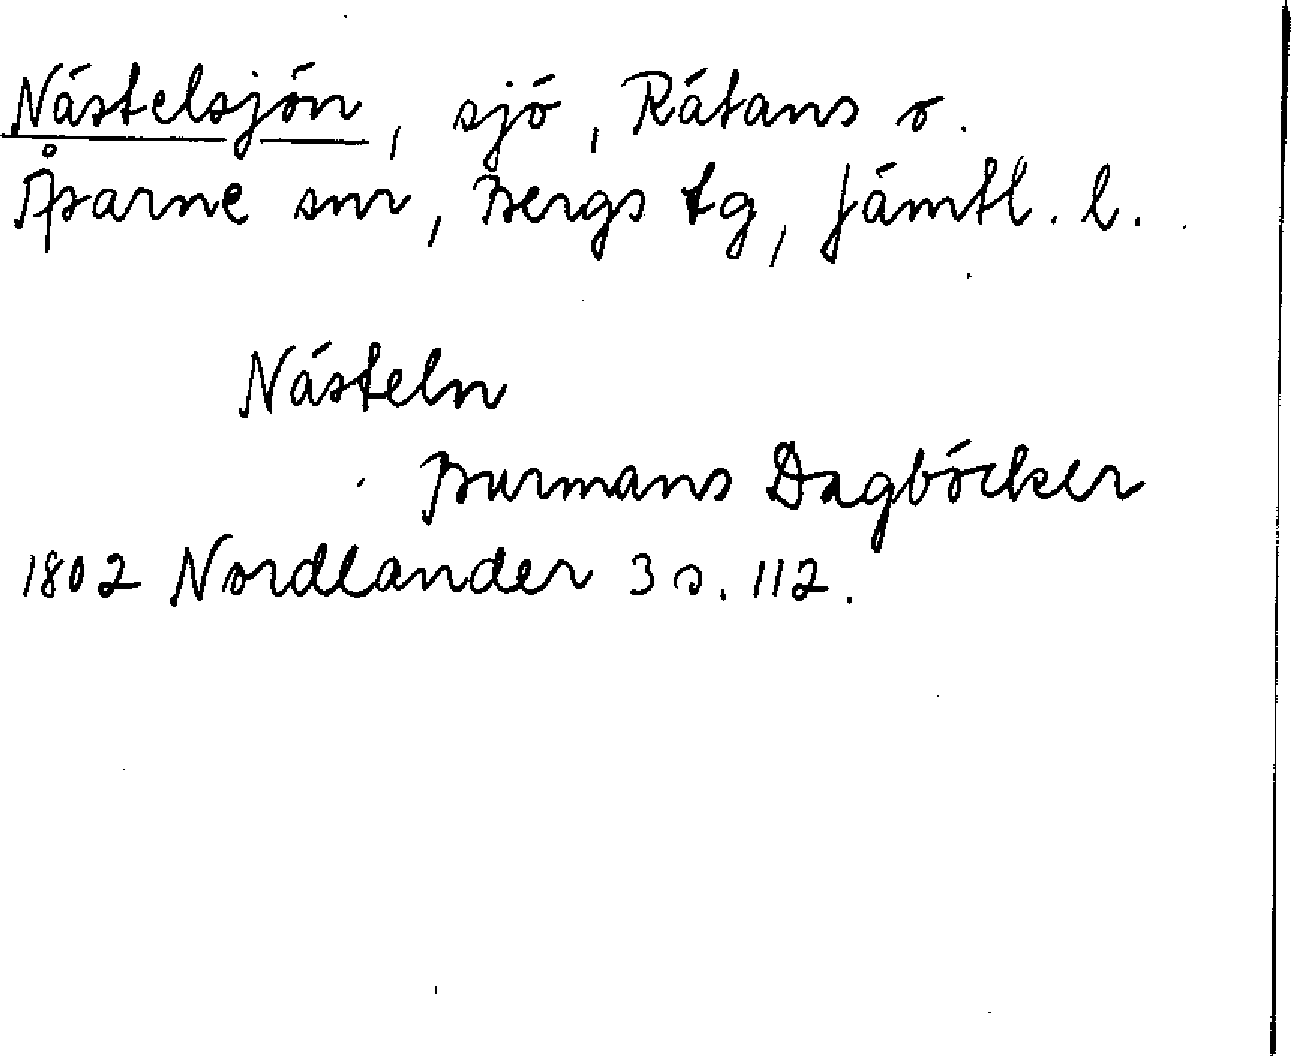 Nästelsjön, sjö, Rätans o.
Åsarne snr, Bergs tg, Jämtl. l.
Nästeln
Burmans Dagböcker
1802 Nordlander 3 s. 112.